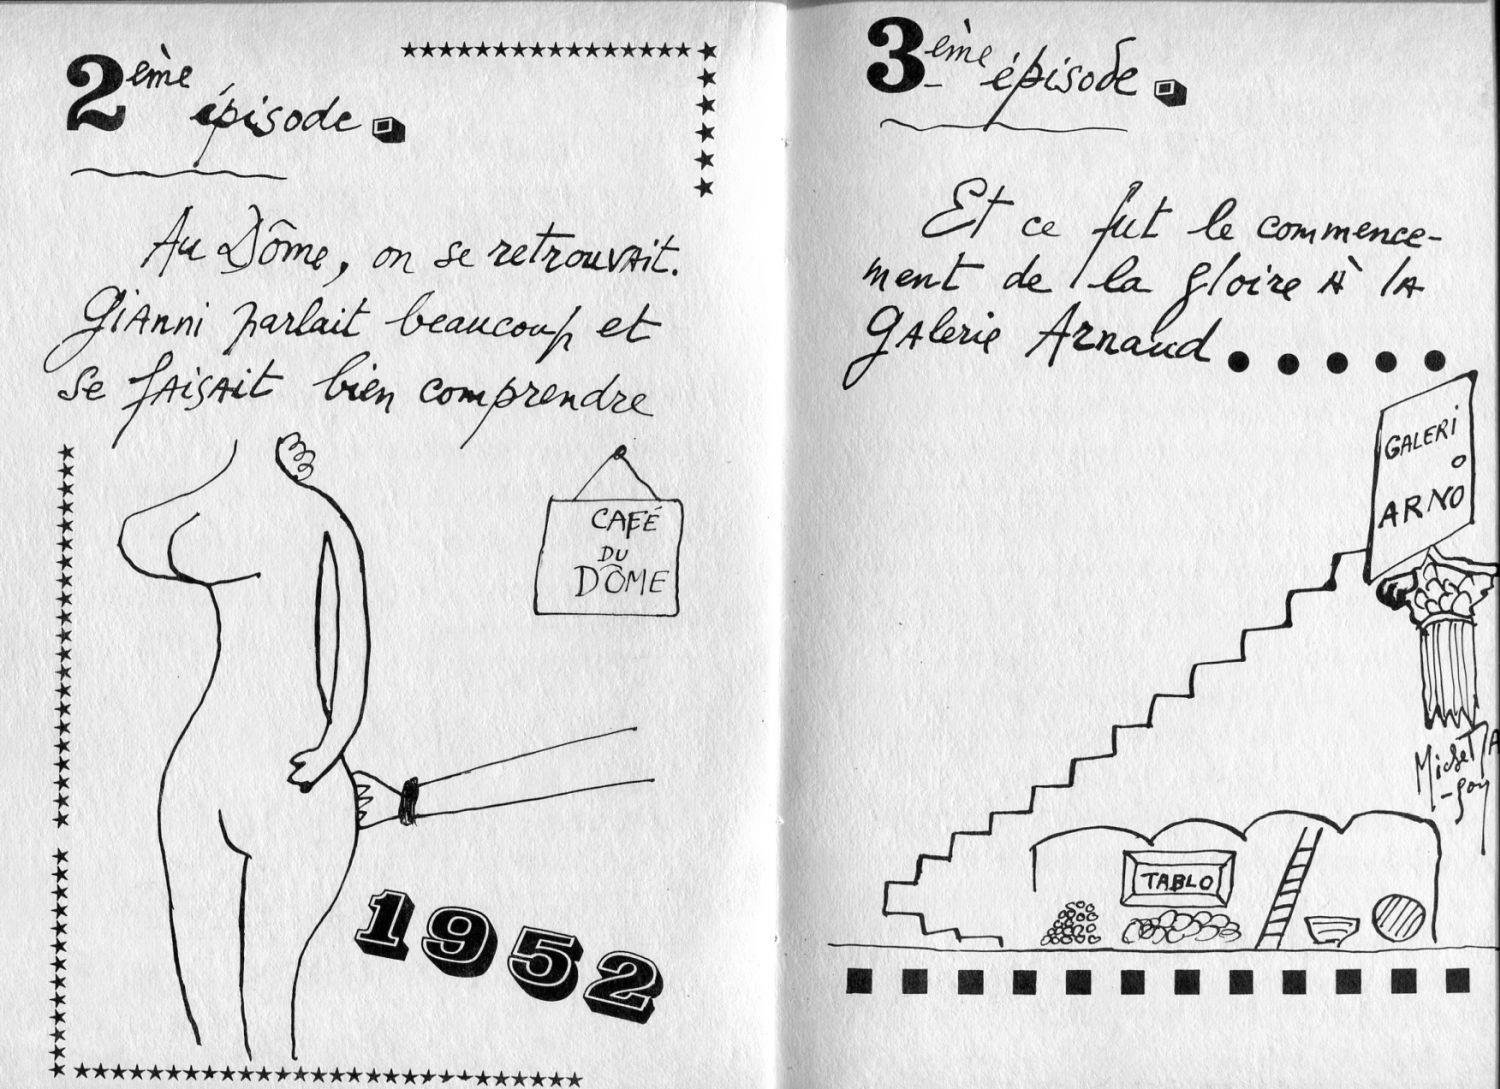 2ème épisode
Au Dôme, on se retrouvait.
Gianni parlait beaucoup et
se faisait bien comprendre
CAFÉ
DU
DÔME
1952
3ème épisode
Et ce fut le commence-
ment de la gloire à la
Galerie Arnaud.....
GALERI
O
ARNO
TABLO